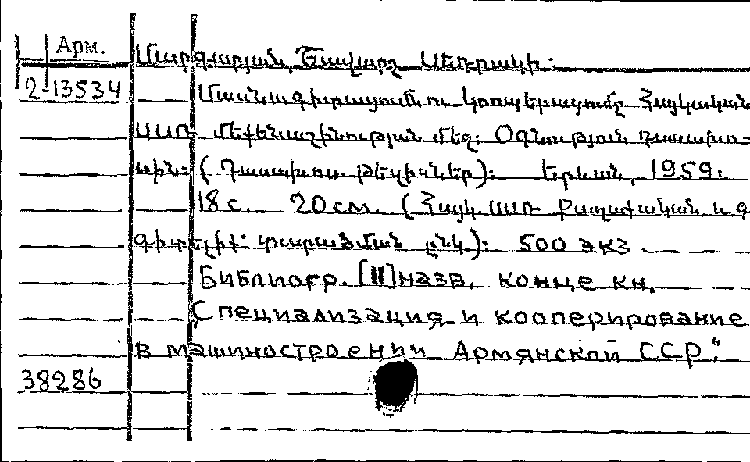 Арм.
Մարգարյան, Շավարշ Սեդրակի.
2-13534 Մասնագիտացումն ու կոոպերացումը Հայկական
ՍՍՌ մեքենաշինության մեջ: Օգնություն դասախո-
սին: (Դասախոս. թեզիսներ): Երևան, 1959.
18 с. 20 см. (Հայկ. ՍՍՌ Քաղաքական և գ
գիտելիք. տարածման ընկ.): 500 экз.
Библиогр. [11] назв. конце кн.
Специализация и кооперирование
в машиностроении Армянской ССР".
38286